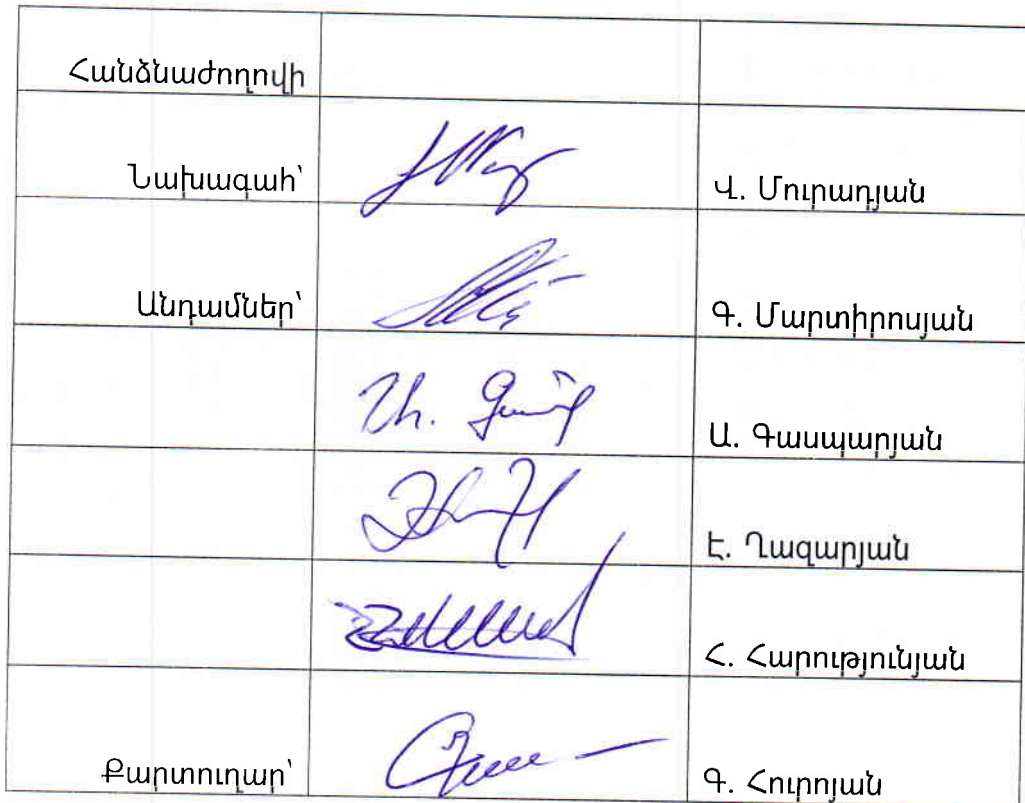 Հանձնաժողովի
Նախագահ՝ Վ. Մուրադյան
Անդամներ՝ Գ. Մարտիրոսյան
Ա. Գասպարյան
Է. Ղազարյան
Հ. Հարությունյան
Քարտուղար՝ Գ. Հուրոյան